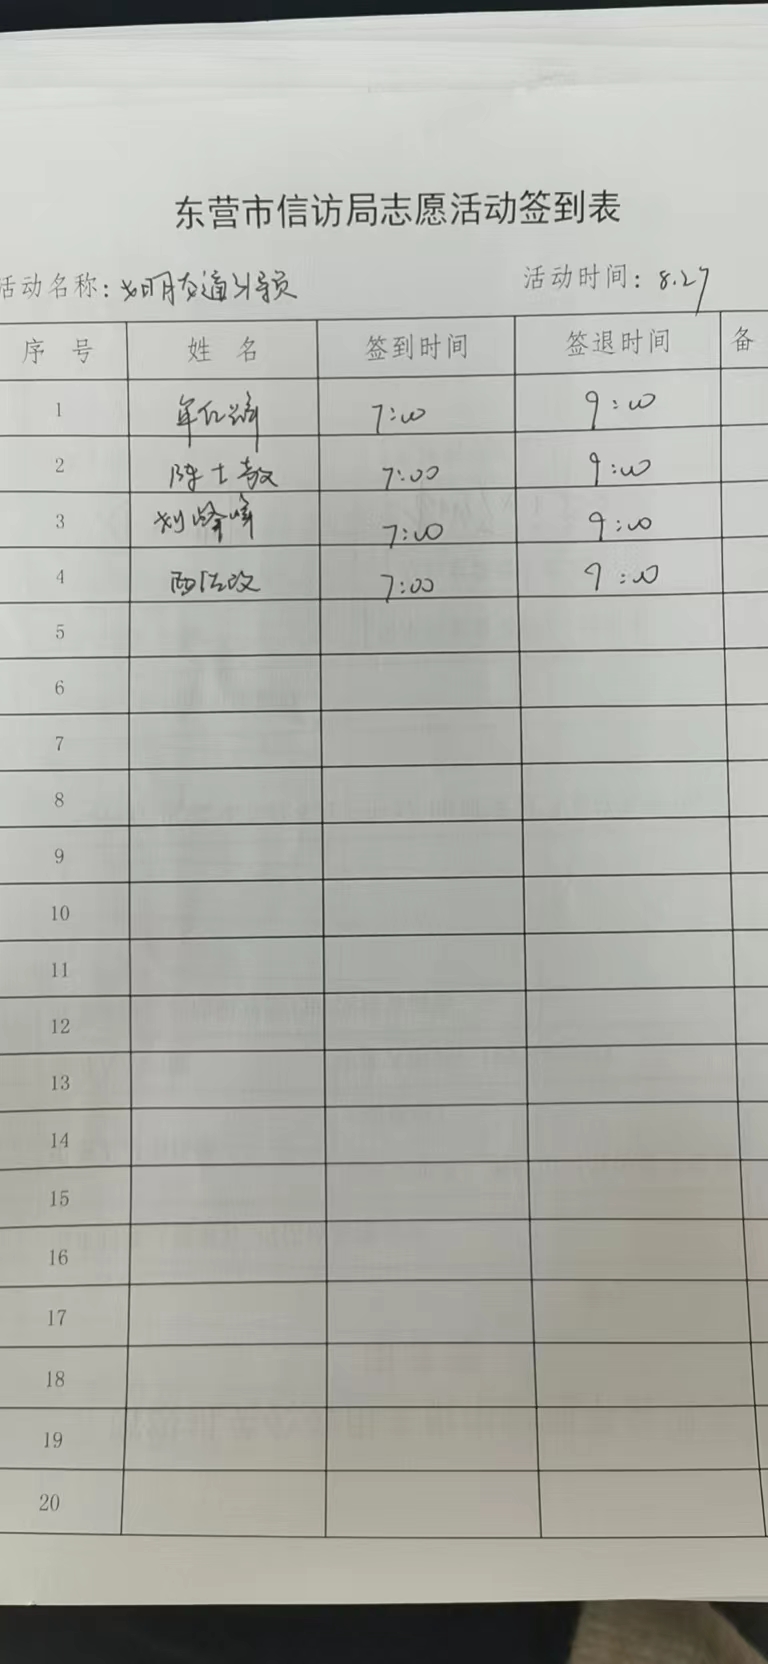 东营市信访局志愿活动签到表
活动名称: 文明交通引导员 活动时间: 8.27
序号 姓名 签到时间 签退时间 备
1 7:00 9:00
2 陈士敏 7:00 9:00
3 刘峰峰 7:00 9:00
4 7:00 9:00
5
6
7
8
9
10
11
12
13
14
15
16
17
18
19
20